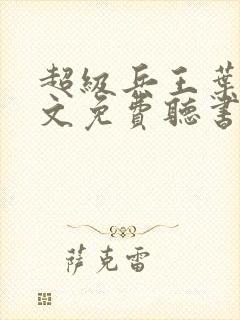 超级兵王葉
文免費聽書
萨克雷